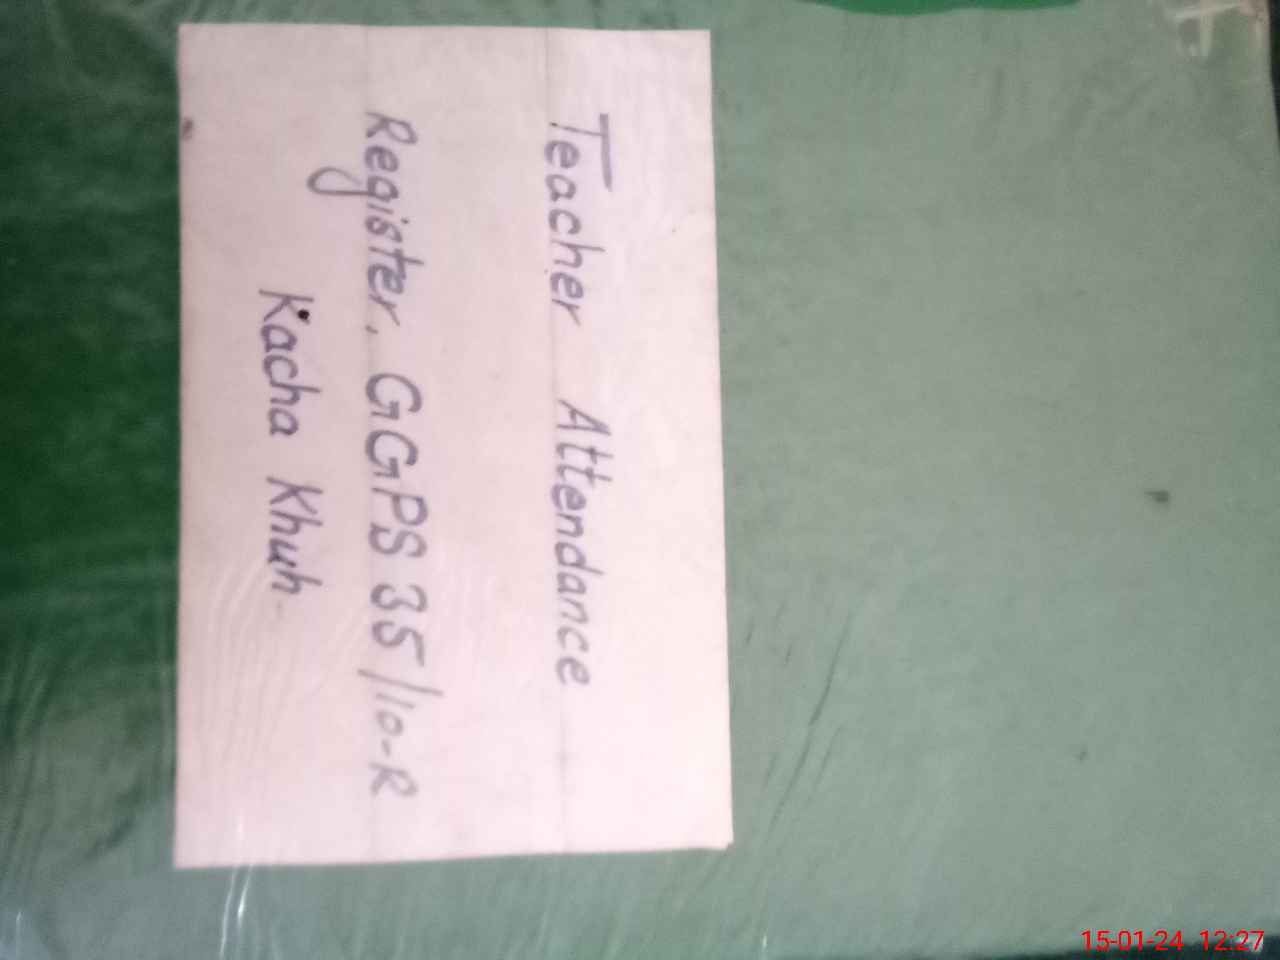 Teacher Attendance
Register. GGPS 35/10-R
Kacha Khuh.
15-01-24 12:27